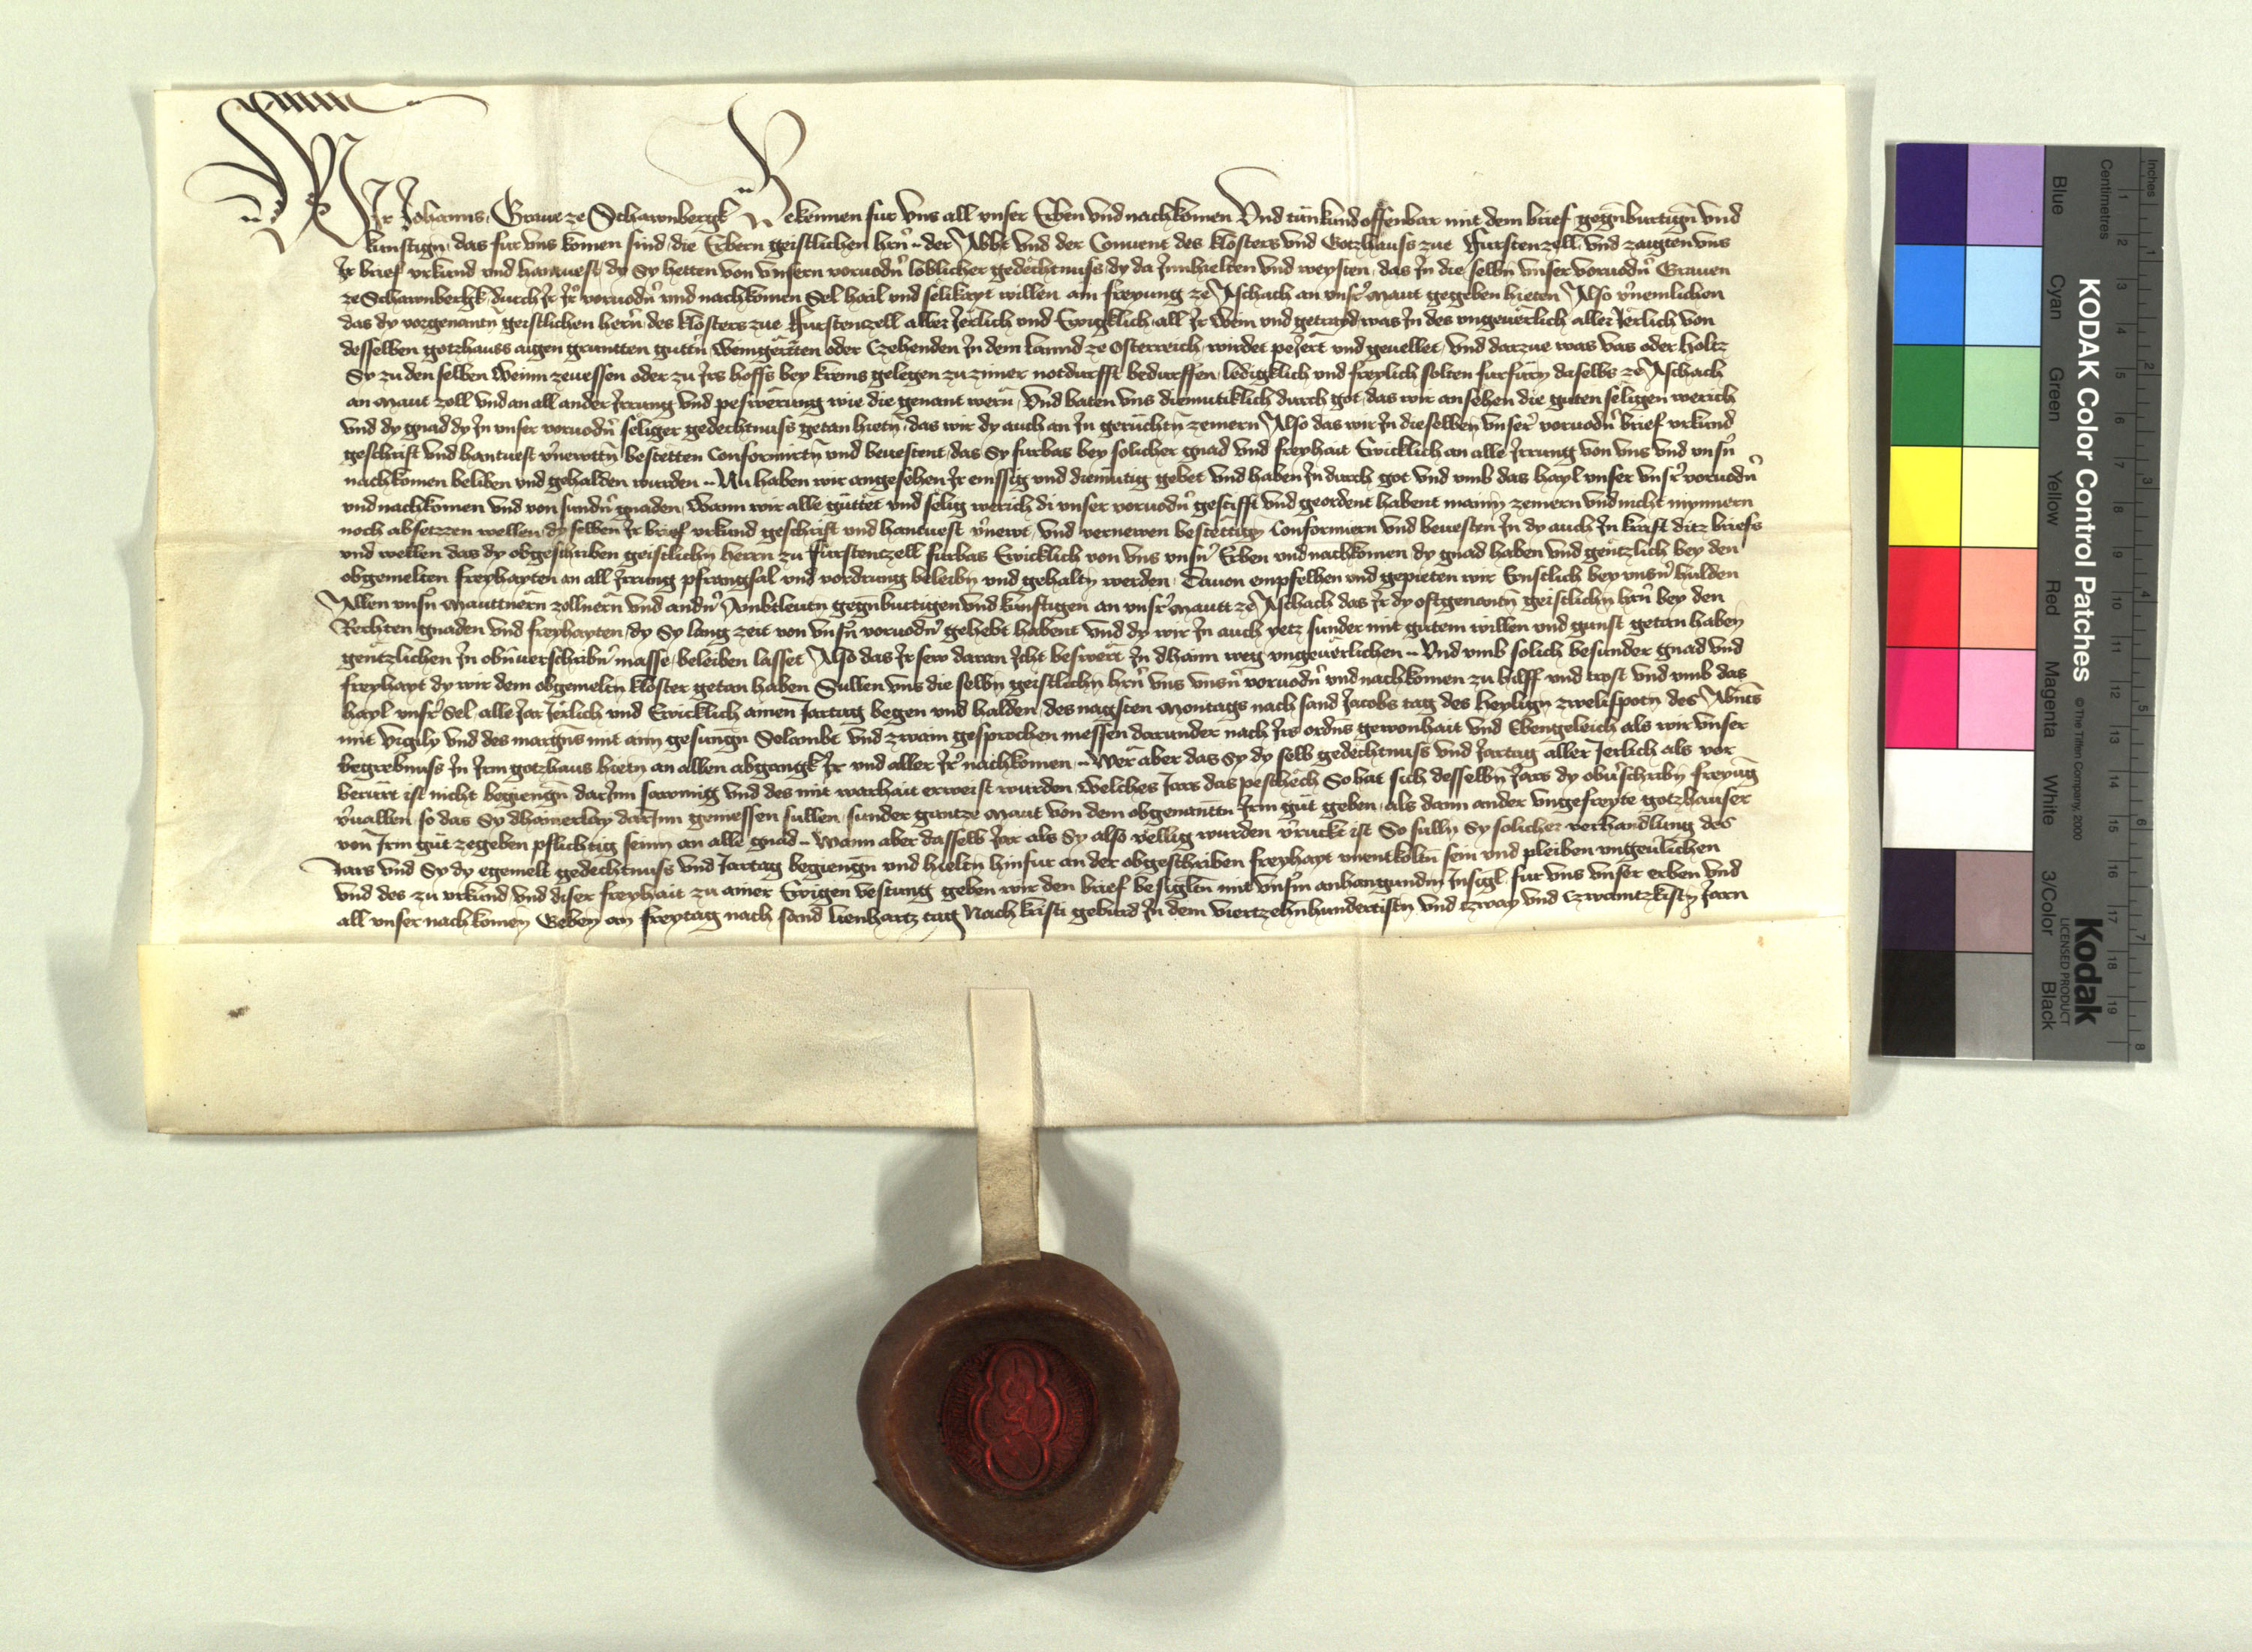 Wir Johanns Graue ze Schawnbergk Bekennen fur vns all vnser Erben vnd nachkomen Vnd tun kund offenbar mit dem brief gegnburtign vnd
kunftign, das fur vns komen sind, die Erbern geistlichen hrn der Abbt vnd der Conuent des klosters vnd Gotzhauss zue Furstenzell, vnd zaigten vns
Ir brief vrkund vnd hantuest, dy Sy hetten von vnsern voruodn loblicher gedechtnuss dy da Innhielten vnd weysten, das In die selbn vnser voruodn Grauen
ze Schawnbergk, durch Ir Ir voruodn vnd nachkomen Sel hail vnd selikayt willen ain freyung ze Aschach an vnsr Maut gegeben hieten Also vnemlichen
das dy vorgenantn geistlichen hern des klosters zue Furstenczell aller Jerlich vnd Ewigklich, all Ir Wein vnd getrayd, was In des vngeuerlich aller Jerlich von
desselben gotzhauss aigen gruntten guttn Weingerten oder Czehenden In dem lannd ze Osterreich, wirdet pezert vnd geuellet, vnd darzue was vas oder holtz
Sy zu den selben Weinn zeuessen oder zu Irs hoffs bey krems gelegen zu zimer notdurfft bedurffen, ledigklich vnd freylich solten furfurn daselbs ze Aschach
an Maut zoll vnd an all ander Irrung vnd peswerung wie die genant wern, Vnd baten vns diemutiklich durch got, das wir ansehen die guten seligen werich
vnd dy gnad dy In vnser voruodn seliger gedechtnuss getan hietn, das wir dy auch an In geruchtn zemern Also das wir In dieselben vnser voruodn brief vrkund
geschrift vnd hantuest vnewttn bestetten Conformirtn vnd beuestent, das Sy furbas bey solicher gnad vnd freyhait Ewicklich an alle Irrung von vns vnd vnsn
nachkomen beliben vnd gehalden wurden Nu haben wir angesehen Ir emssig vnd diemutig gebet vnd haben In durch got vnd vmb das hayl vnser vnsr voruodn
vnd nachkomen vnd von sundn gnaden, Wann wir alle guttet vnd selig werich di vnser voruodn gestifft vnd geordent habent mainn zemern vnd nicht mynnern
noch absetzen wellen, dy selben Ir brief vrkund geschrift vnd hantuest vnewt, vnd vernewen bestettign Conformiern vnd beuesten In dy auch In kraft ditz briefs
vnd wellen das dy obgeschriben geistlichn herrn zu Furstenczell furbas Ewicklich von vns vnsn Erben vnd nachkomen dy gnad haben vnd gentzlich bey den
obgemelten freyhayten an all Irrung pfrangsal vnd vordrung beleibn vnd gehaltn werden, Dauon empfelhen vnd gepieten wir Ernstlich bey vnsn hulden
Allen vnsn Mauttnern zollnern vnd andn Ambtleutn gegnburtigen vnd kunftigen an vnsr Mautt ze Aschach das Ir dy oftgenantn geistlichn hrn bey den
Rechten gnaden vnd freyhayten, dy Sy lang zeit von vnsn voruodn gehebt habent vnd dy wir In auch yetz sunder mit gutem willen vnd gunst getan haben
gentzlichen In obnuerschribn masse, beleiben lasset Also das Ir sew daran Icht beswert In dhain weg vngeuerlichen Vnd vmb solich besunder gnad vnd
freyhayt dy wir dem obgemeltn kloster getan haben Sullen vns die selbn geistlichn hrn vns vnsn voruodn vnd nachkomen zu hilff vnd trost vnd vmb das
hayl vnsr Sel, alle Jar Jerlich vnd Ewicklich ainen Jartag begen vnd halden, des nagsten Montags nach sand Jacobs tag des heylign zwelifpotn des Abnts
mit vigily vnd des margns mit ainn gesungn Selambt vnd zwain gesprochen messen darunder nach Irs ordns gewonhait vnd Ebengeleich als wir vnser
begrebnuss In Irm gotzhaus hietn an allen abgangk Ir vnd aller Ir nachkomen, Wer aber das Sy dy selb gedechtnuss vnd Jartag aller Jerlich als vor
berurt ist nicht begiengn, darInn sawmig vnd des mit warhait erweist wurden, Welches Jars das peschech So hat sich desselbn Jars dy obuschribn freyug
vuallen, so das Sy dhainerlay darInn geniessen sullen, sunder gantze Maut von dem obgenantn Irm gut geben, als dann ander vngefreyte gotzhauser
von Irm gut zegeben pflichtig seinn an alle gnad Wann aber dasselb Jar als Sy also vellig wurden vruckt ist So sulln Sy solicher verhandlung des
Jars vnd Sy dy egemelt gedechtnuss vnd Jartag begiengn vnd hieltn hinfur an der obgeschriben freyhayt vnentkoltn sein vnd pleiben vngeulichen
vnd des zu vrkund vnd diser freyhait zu ainer Ewigen vestung geben wir den brief besigltn mit vnsm anhangundn Insigl, fur vns vnser erben vnd
all vnser nachkomen Geben an freytag nach sand lienhartz tag Nach kristi geburd In dem viertzehnhundertistn vnd tzway vnd Czwaintzkistn Jarn
KODAK Color Control Patches
© The Tiffen Company, 2000
Kodak
LICENSED PRODUCT
Inches
Centimetres
Blue
Cyan
Green
Yellow
Red
Magenta
White
3/Color
Black
1 2 3 4 5 6 7 8
1 2 3 4 5 6 7 8 9 10 11 12 13 14 15 16 17 18 19